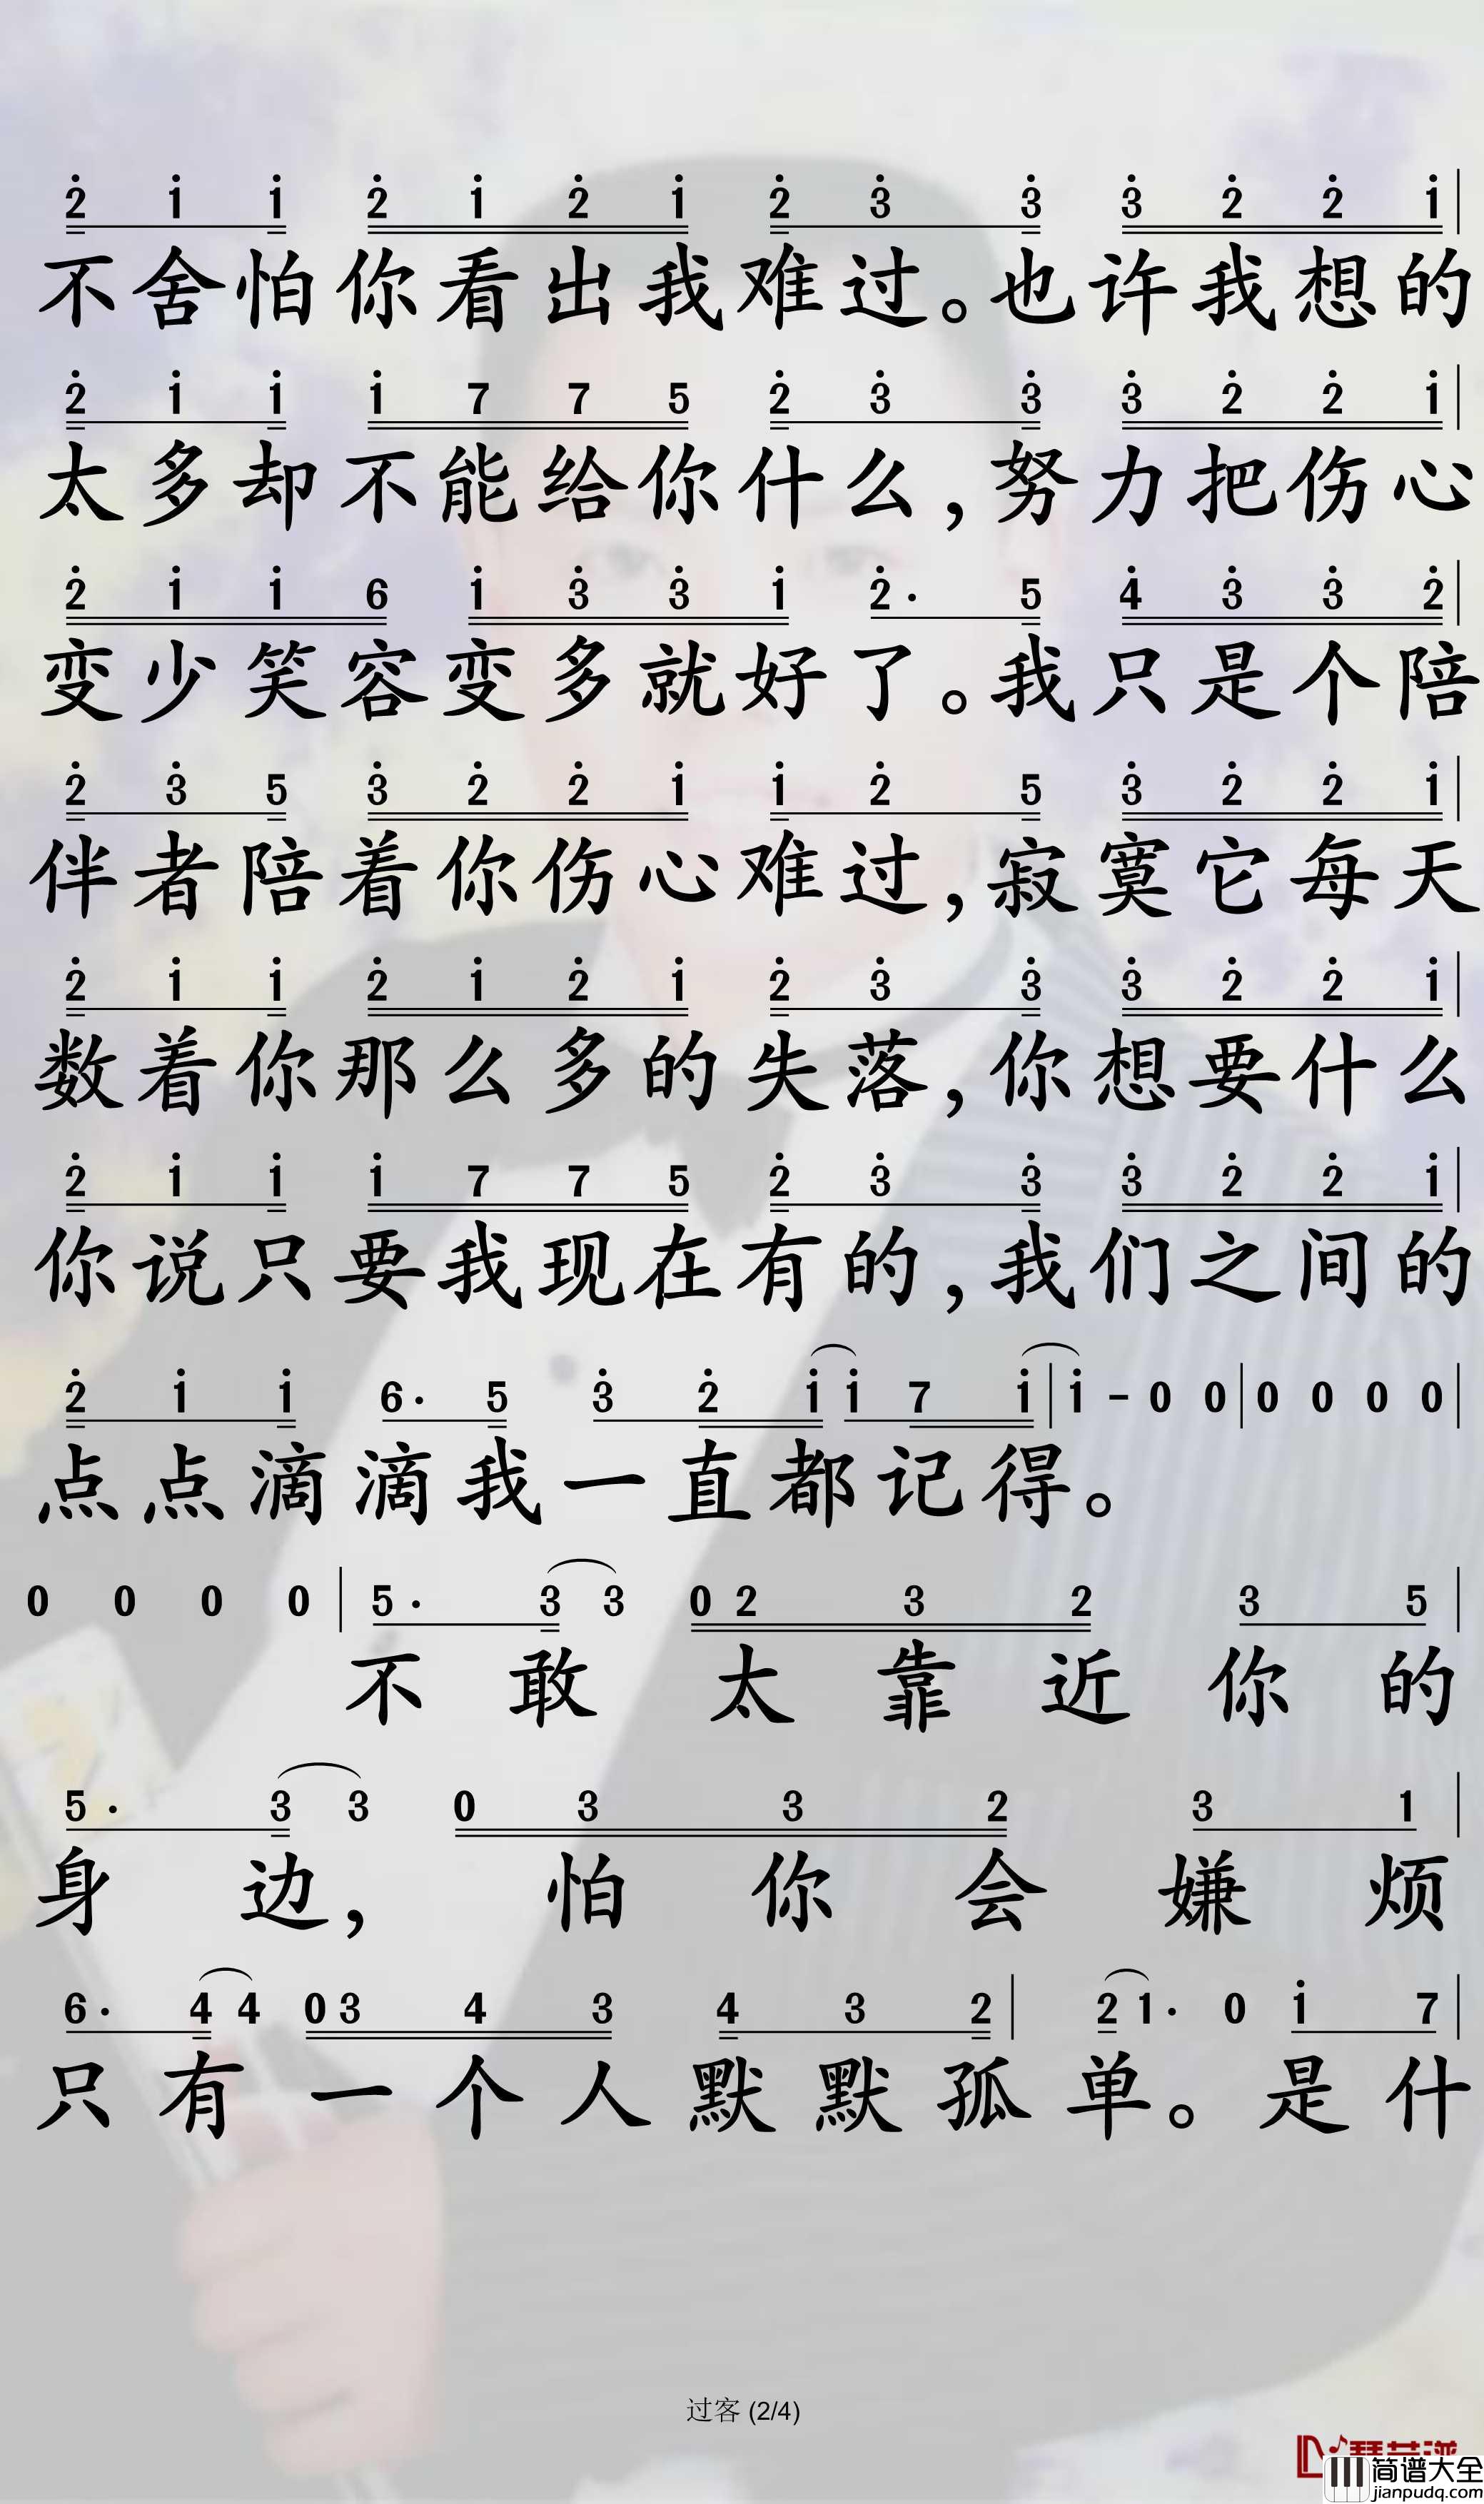 2̇ 1̇ 1̇ 2̇ 1̇ 2̇ 1̇ 2̇ 3̇ 3̇ 3̇ 2̇ 2̇ 1̇ |
不舍怕你看出我难过。也许我想的
2̇ 1̇ 1̇ 1̇ 7 7 5 2̇ 3̇ 3̇ 3̇ 2̇ 2̇ 1̇ |
太多却不能给你什么,努力把伤心
2̇ 1̇ 1̇ 6 1̇ 3̇ 3̇ 1̇ 2̇· 5 4̇ 3̇ 3̇ 2̇ |
变少笑容变多就好了。我只是个陪
2̇ 3̇ 5 3̇ 2̇ 2̇ 1̇ 1̇ 2̇ 5 3̇ 2̇ 2̇ 1̇ |
伴者陪着你伤心难过,寂寞它每天
2̇ 1̇ 1̇ 2̇ 1̇ 2̇ 1̇ 2̇ 3̇ 3̇ 3̇ 2̇ 2̇ 1̇ |
数着你那么多的失落,你想要什么
2̇ 1̇ 1̇ 1̇ 7 7 5 2̇ 3̇ 3̇ 3̇ 2̇ 2̇ 1̇ |
你说只要我现在有的,我们之间的
2̇ 1̇ 1̇ 6· 5 3̇ 2̇ 1̇ 1̇ 7 1̇ | 1̇ - 0 0 | 0 0 0 0 |
点点滴滴我一直都记得。
0 0 0 0 | 5· 3 3 0 2 3 2 3 5 |
不敢太靠近你的
5· 3 3 0 3 3 2 3 1 |
身边,怕你会嫌烦
6· 4 4 0 3 4 3 4 3 2 | 2 1· 0 1̇ 7 |
只有一个人默默孤单。是什
过客 (2/4)
简谱大全
jianpudq.com